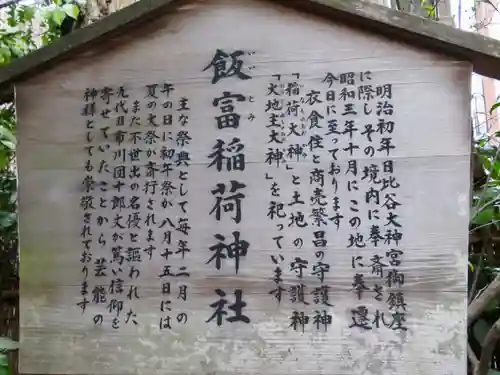 明治初年日比谷大神宮御鎮座
に際し その境内に奉斎され
昭和三年十月にこの地に奉遷
今日に至っております
衣食住と商売繁昌の守護神
「稲荷大神」と土地の守護神
「大地主大神」を祀っています
飯富稲荷神社
いいとみ
主な祭典として毎年二月の
午の日に初午祭が八月十五日には
夏の大祭が斎行されます
また不世出の名優と謳われた
九代目市川団十郎丈が篤い信仰を
寄せていたことから芸能の
神様としても崇敬されております